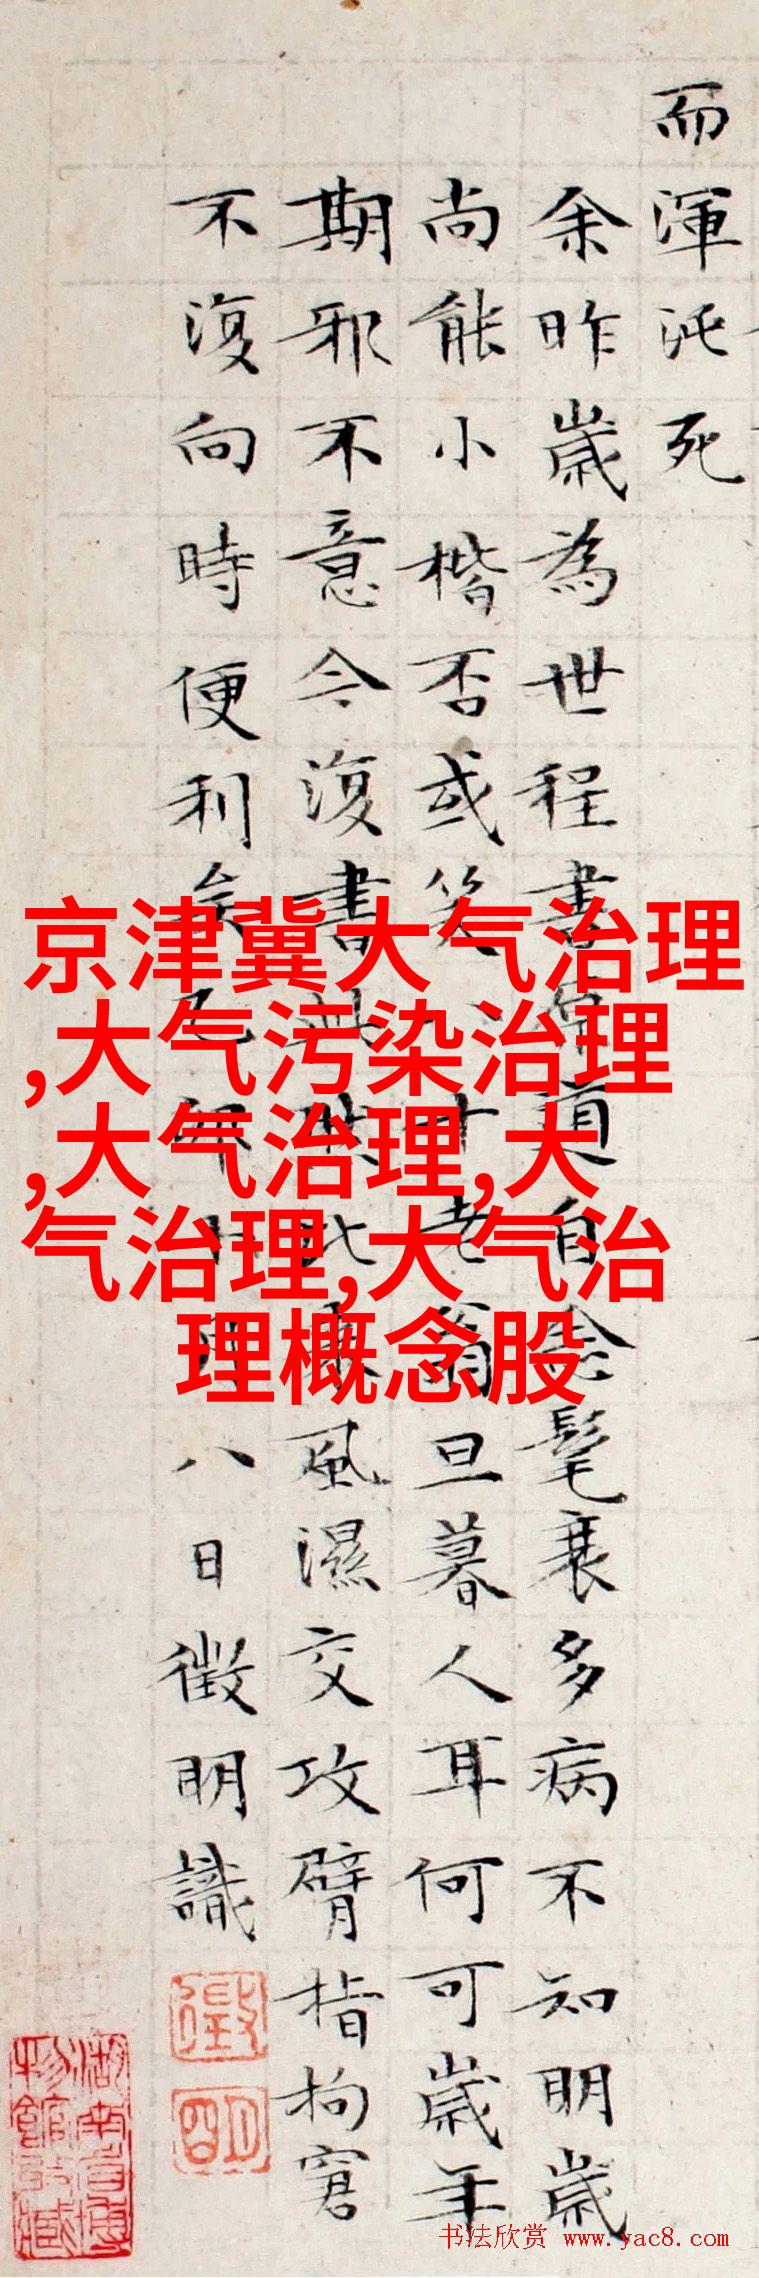 而渾沌死
余昨歲為世程書自念髦衰多病不知明歲
尚能小楷否或笑八十老翁旦暮人耳何可歲年
期邪不意今復書此風濕交攻臂指拘窘
不復向時便利矣八日徵明識
京津冀大气治理
,大气污染治理
,大气治理,大
气治理,大气治
理概念股
书法欣赏 www.yac8.com